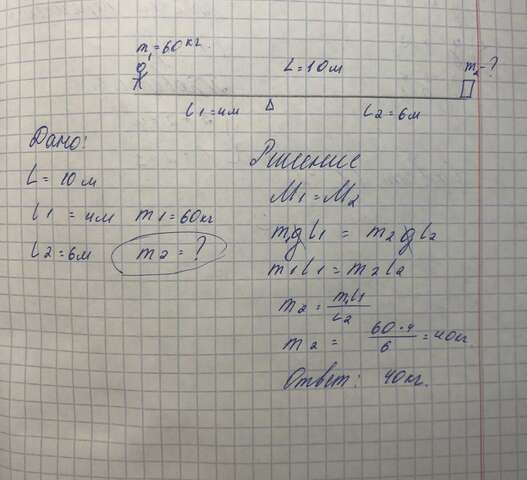 m₁=60кг.
L=10м
m₂-?
L1=4м
L2=6м
Дано:
L= 10 м
L1 = 4м m1=60кг
L2=6м m2 = ?
Решение
M1=M2
m1gL1 = m2gL2
m1L1=m2L2
m2 = m1L1/L2
m2 = 60·4/6 =40кг.
Ответ: 40кг.